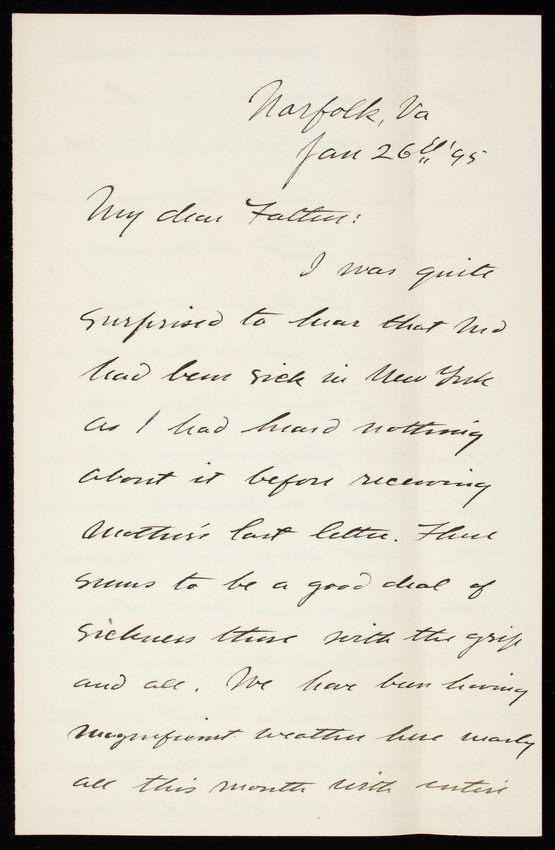 Norfolk, Va
Jan 26th '95
My dear Father:
I was quite
surprised to hear that Ned
had been sick in New York
as I had heard nothing
about it before receiving
Mother's last letter. There
seems to be a good deal of
sickness there with the grip
and all. We have been having
magnificent weather here nearly
all this month with entire